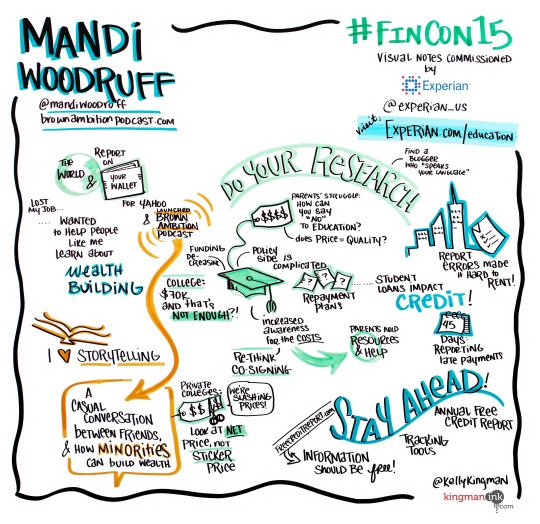 MANDI
WOODRUFF
@mandiwoodruff
brownambitionpodcast.com
#FINCON15
VISUAL NOTES COMMISSIONED
by
Experian
@experian_us
visit:
EXPERIAN.com/education
THE
WORLD
&
REPORT
ON
YOUR
WALLET
FOR YAHOO
&
LAUNCHED
BROWN
AMBITION
PODCAST
LOST
MY JOB...
.... WANTED
to HELP PEOPLE
LIKE ME
LEARN ABOUT
WEALTH
BUILDING
I
STORYTELLING
A
CASUAL
CONVERSATION
BETWEEN FRIENDS,
& HOW MINORITIES
CAN BUILD WEALTH
DO YOUR RESEARCH
PARENTS' STRUGGLE:
HOW CAN
YOU SAY
"NO"
TO EDUCATION?
does PRICE = QUALITY?
$$$$
FUNDING
DE-
CREASING
POLICY
SIDE is
COMPLICATED
COLLEGE:
$70K
AND that's
NOT ENOUGH?!
? ? ?
Repayment
PLANS
..... STUDENT
LOANS IMPACT
CREDIT!
INCREASED
AWARENESS
FOR the COSTS
RE-THINK
CO-SIGNING
PARENTS NEED
RESOURCES
& HELP
PRIVATE
COLLEGES:
$$
WE'RE
SLASHING
PRICES!
LOOK AT NET
PRICE, NOT
STICKER
PRICE
FIND A
BLOGGER
WHO "SPEAKS
YOUR LANGUAGE"
REPORT
ERRORS MADE
it HARD to
RENT!
45
DAYS:
REPORTING
LATE PAYMENTS
STAY AHEAD!
ANNUAL FREE
CREDIT REPORT
TRACKING
TOOLS
FREECREDITREPORT.com
INFORMATION
SHOULD BE free!
@KellyKingman
kingman ink
.com